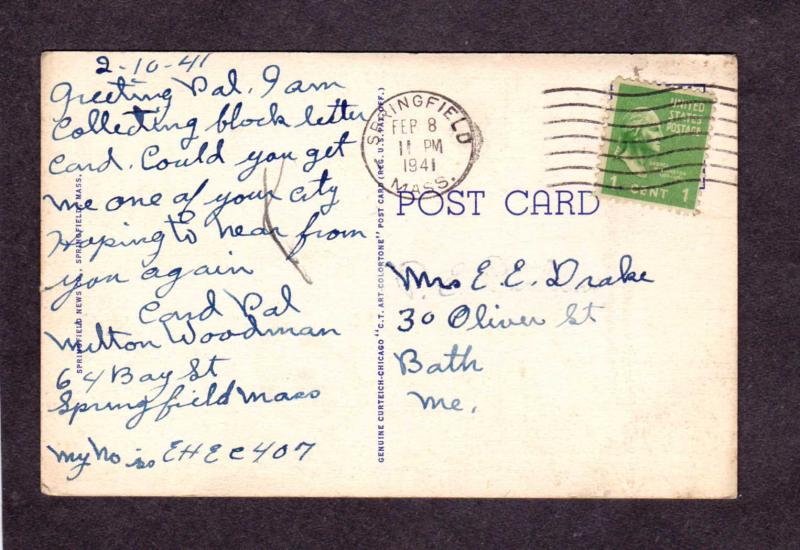 2-10-41
Greeting Pal. I am
Collecting block letter
Card. Could you get
me one of your City
Hoping to hear from
you again
Card Pal
Milton Woodman
64 Bay St
Springfield Mass
My No is EHEC407
SPRINGFIELD NEWS CO., SPRINGFIELD, MASS.
GENUINE CURTEICH-CHICAGO "C.T. ART-COLORTONE" POST CARD (REG. U.S. PAT. OFF.)
SPRINGFIELD
FEB 8
11 PM
1941
MASS.
UNITED
STATES
POSTAGE
1 CENT 1
POST CARD
Mrs E. E. Drake
30 Oliver St
Bath
Me.